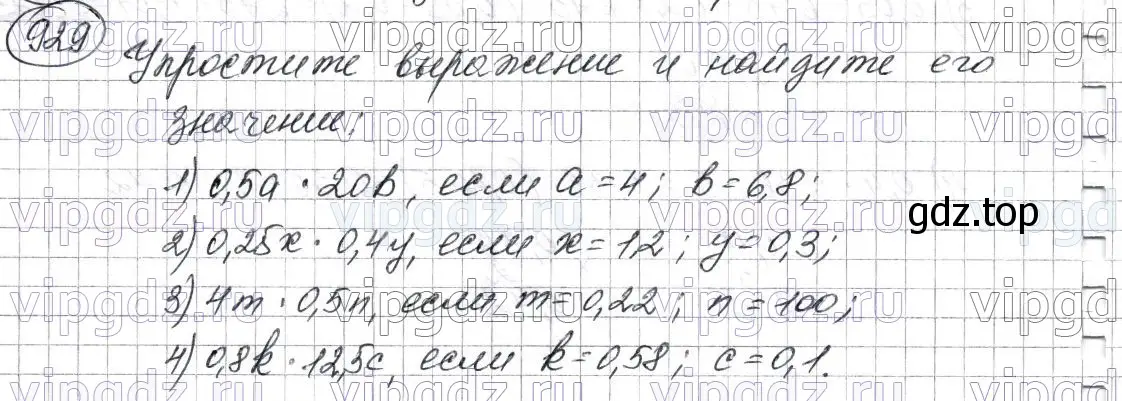 929
Упростите выражение и найдите его
значение:
1) 0,5a · 20b, если a = 4; b = 6,8;
2) 0,25x · 0,4y, если x = 1,2; y = 0,3;
3) 4m · 0,5n, если m = 0,22; n = 100;
4) 0,8k · 12,5c, если k = 0,58; c = 0,1.
gdz.top
vipgdz.ru